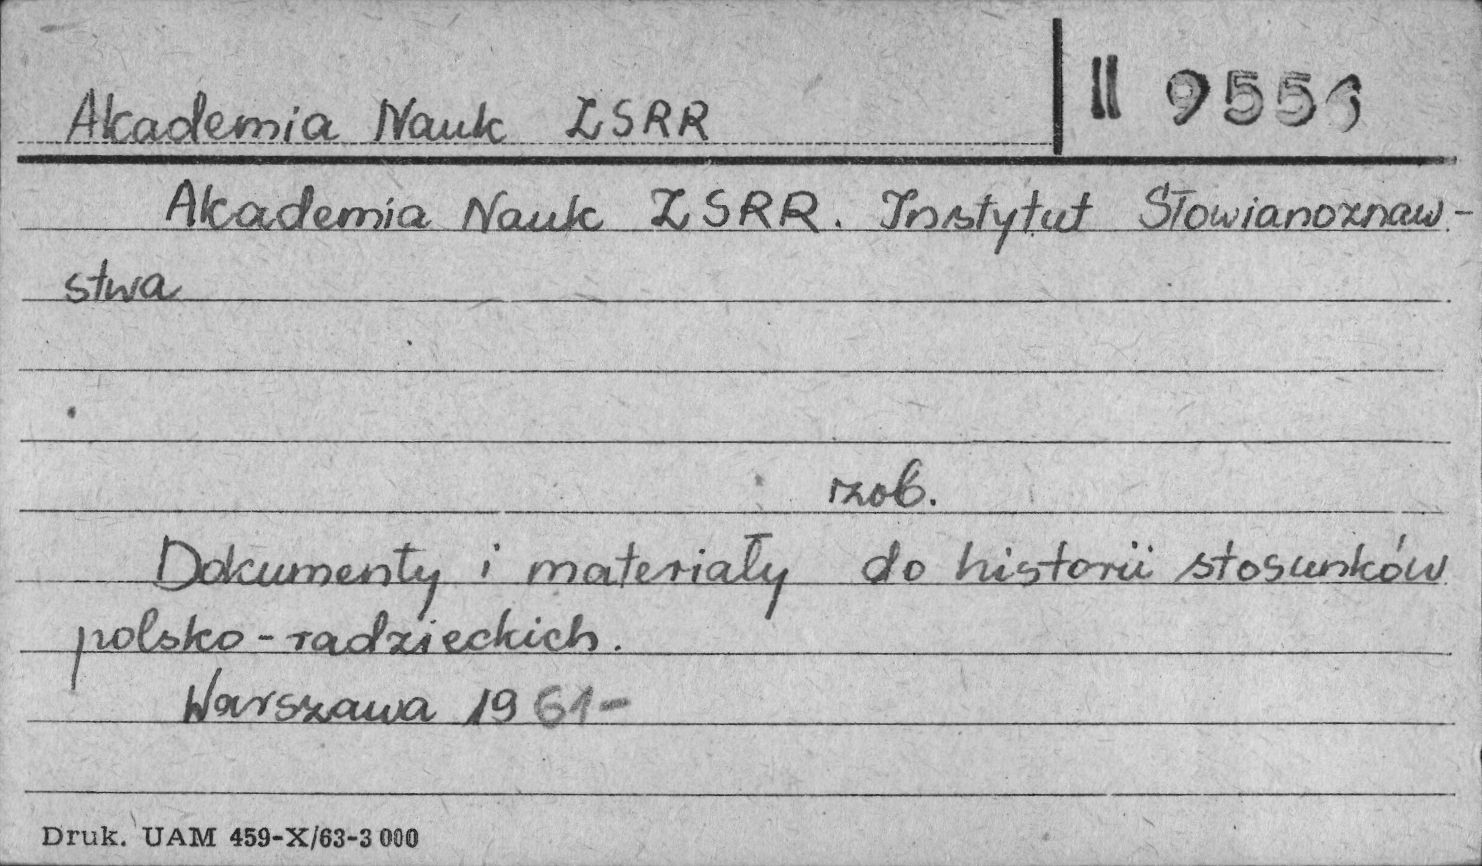 Akademia Nauk ZSRR
II 9556
Akademia Nauk ZSRR. Instytut Słowianoznaw-
stwa
zob.
Dokumenty i materiały do historii stosunków
polsko-radzieckich.
Warszawa 1961-
Druk. UAM 459-X/63-3 000